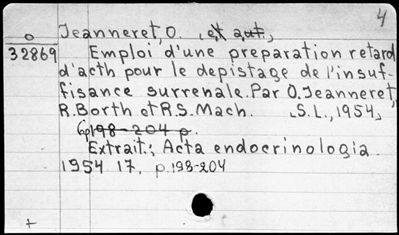 4
Jeanneret, O. [et aut.]
o
32869
Emploi d'une preparation retard
d'acth pour le depistage de l'insuf-
fisance surrenale. Par O. Jeanneret,
R. Borth et R.S. Mach. [S.L., 1954]
198-204 p.
Extrait: Acta endocrinologia
1954 17, p. 198-204
+